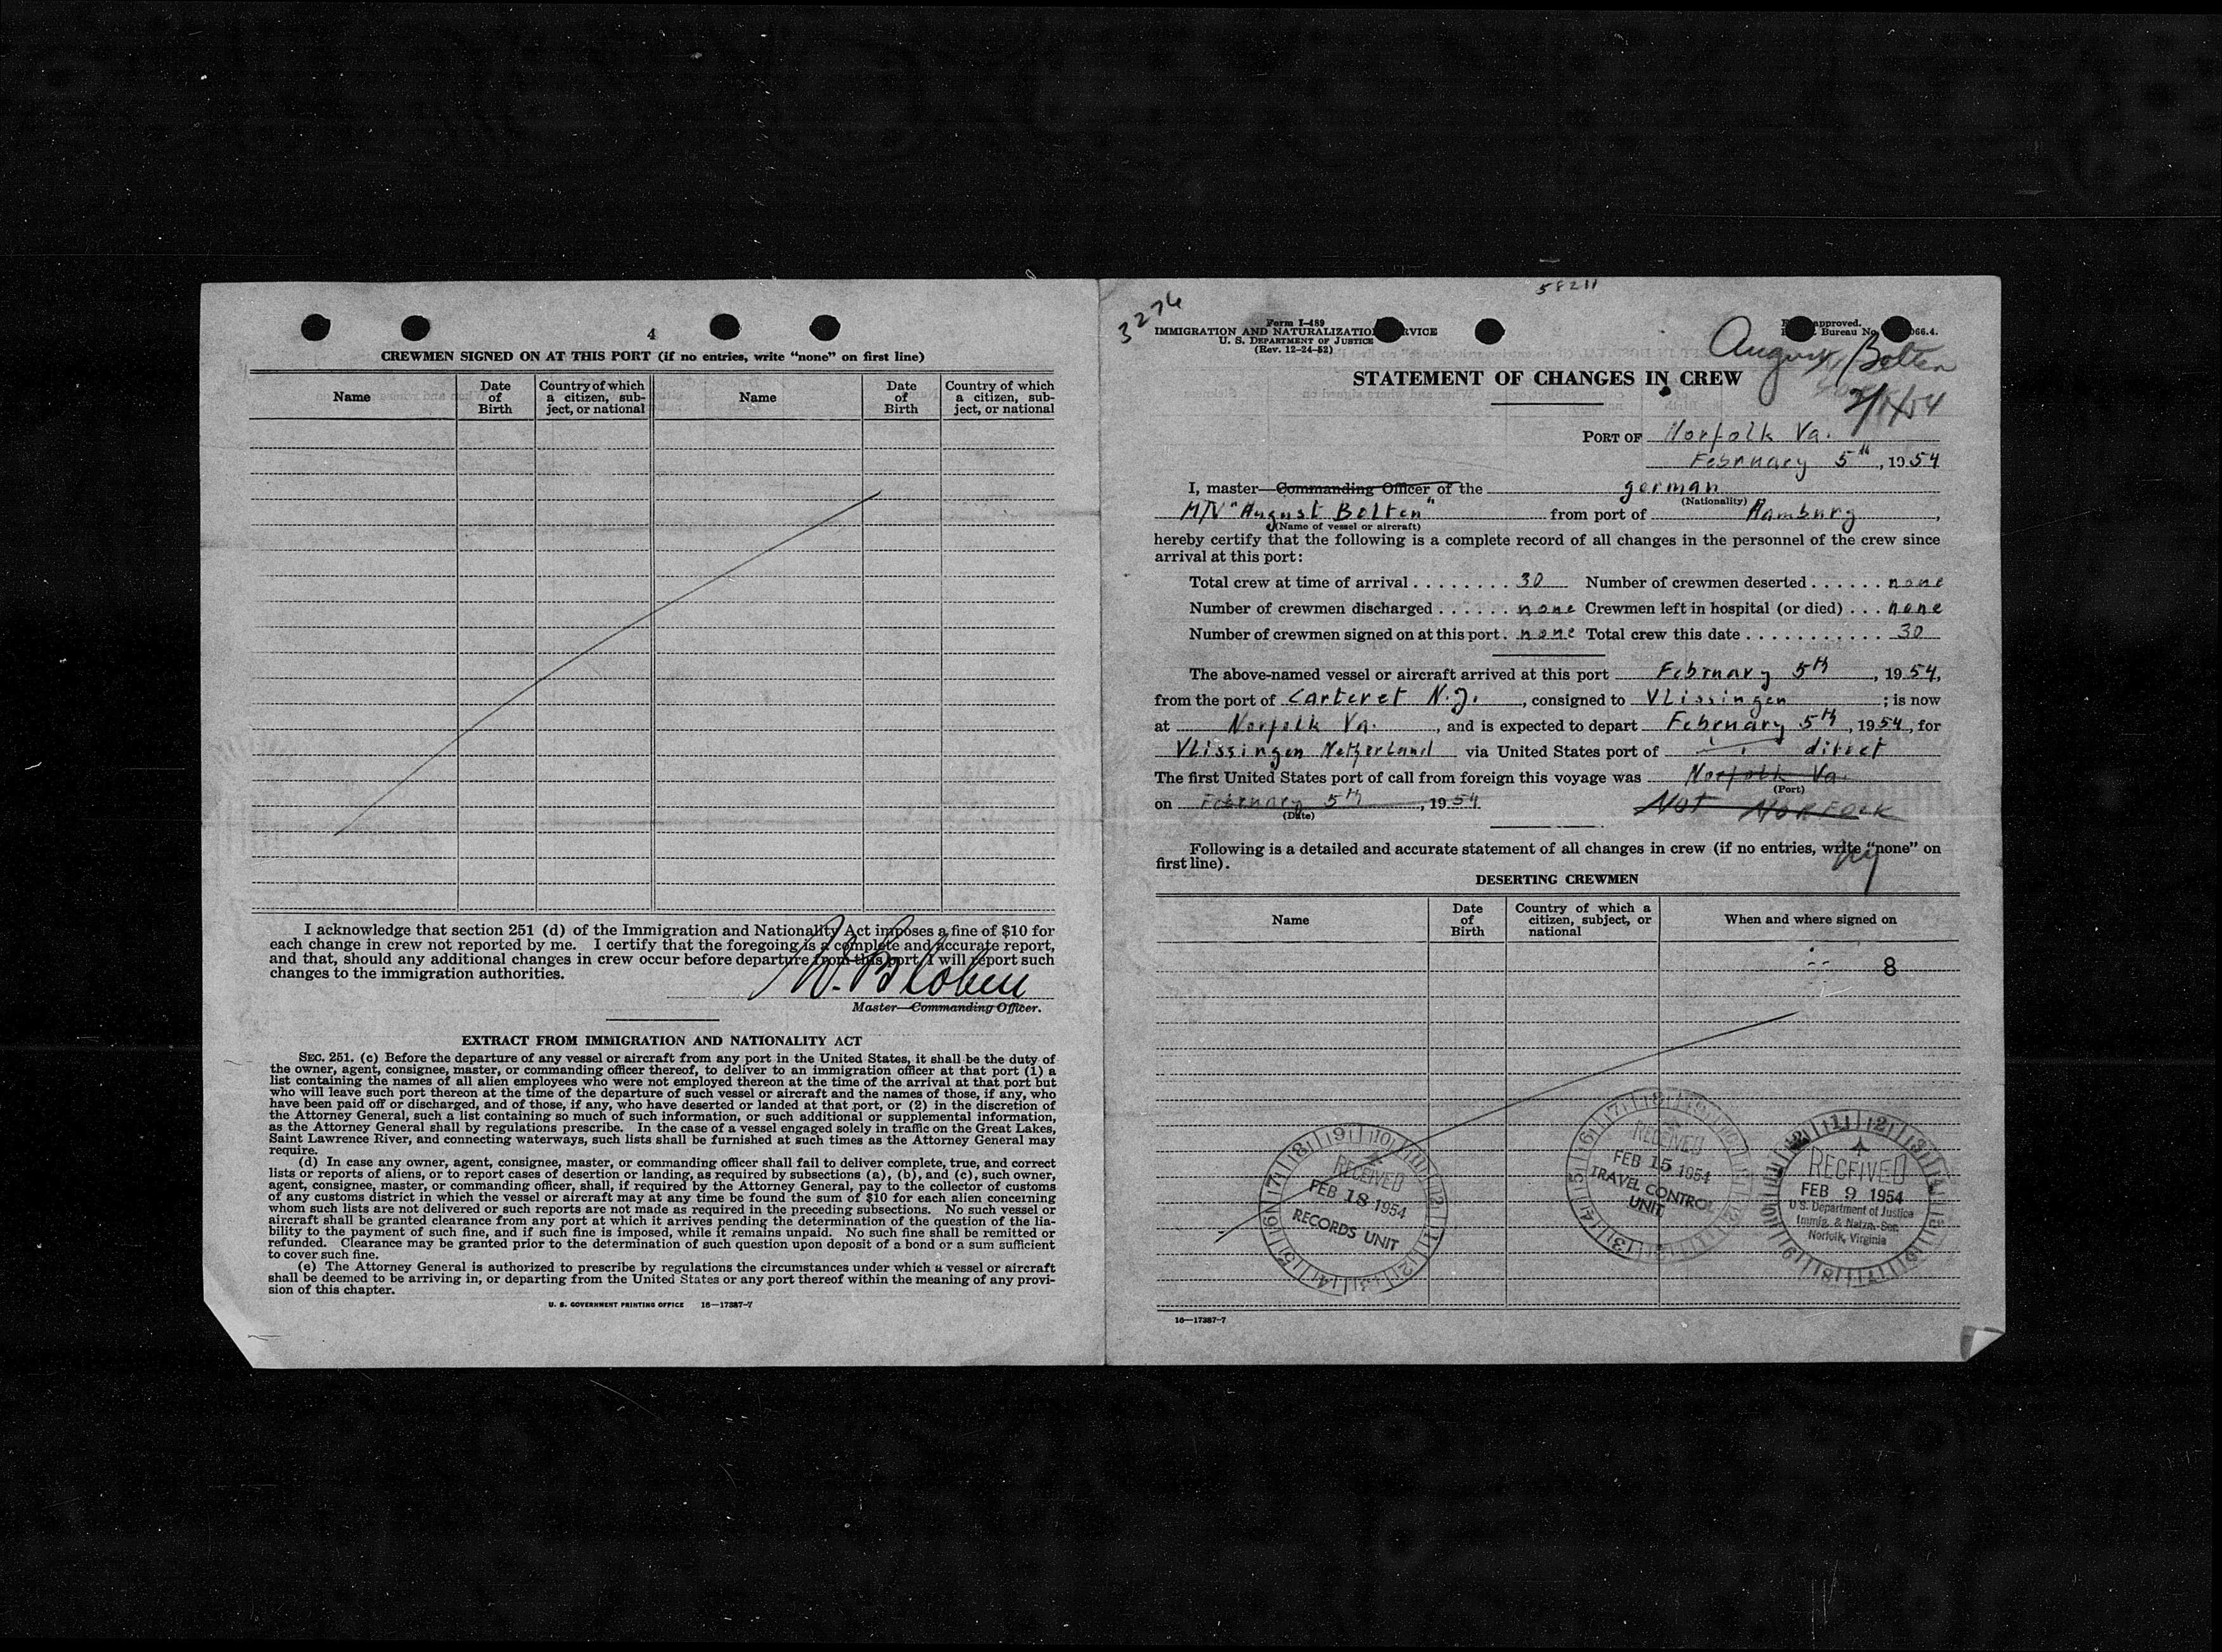 4
CREWMEN SIGNED ON AT THIS PORT (if no entries, write "none" on first line)
Name
Date of Birth
Country of which a citizen, subject, or national
Name
Date of Birth
Country of which a citizen, subject, or national
I acknowledge that section 251 (d) of the Immigration and Nationality Act imposes a fine of $10 for
each change in crew not reported by me. I certify that the foregoing is a complete and accurate report,
and that, should any additional changes in crew occur before departure from this port, I will report such
changes to the immigration authorities.
Master—Commanding Officer.
EXTRACT FROM IMMIGRATION AND NATIONALITY ACT
SEC. 251. (c) Before the departure of any vessel or aircraft from any port in the United States, it shall be the duty of
the owner, agent, consignee, master, or commanding officer thereof, to deliver to an immigration officer at that port (1) a
list containing the names of all alien employees who were not employed thereon at the time of the arrival at that port but
who will leave such port thereon at the time of the departure of such vessel or aircraft and the names of those, if any, who
have been paid off or discharged, and of those, if any, who have deserted or landed at that port, or (2) in the discretion of
the Attorney General, such a list containing so much of such information, or such additional or supplemental information,
as the Attorney General shall by regulations prescribe. In the case of a vessel engaged solely in traffic on the Great Lakes,
Saint Lawrence River, and connecting waterways, such lists shall be furnished at such times as the Attorney General may
require.
(d) In case any owner, agent, consignee, master, or commanding officer shall fail to deliver complete, true, and correct
lists or reports of aliens, or to report cases of desertion or landing, as required by subsections (a), (b), and (c), such owner,
agent, consignee, master, or commanding officer, shall, if required by the Attorney General, pay to the collector of customs
of any customs district in which the vessel or aircraft may at any time be found the sum of $10 for each alien concerning
whom such lists are not delivered or such reports are not made as required in the preceding subsections. No such vessel or
aircraft shall be granted clearance from any port at which it arrives pending the determination of the question of the lia-
bility to the payment of such fine, and if such fine is imposed, while it remains unpaid. No such fine shall be remitted or
refunded. Clearance may be granted prior to the determination of such question upon deposit of a bond or a sum sufficient
to cover such fine.
(e) The Attorney General is authorized to prescribe by regulations the circumstances under which a vessel or aircraft
shall be deemed to be arriving in, or departing from the United States or any port thereof within the meaning of any provi-
sion of this chapter.
U. S. GOVERNMENT PRINTING OFFICE 16—17387-7
58211
3276
Form I-489
IMMIGRATION AND NATURALIZATIO RVICE
U. S. DEPARTMENT OF JUSTICE
(Rev. 12-24-52)
approved.
Bureau No. 066.4.
August Bolten
STATEMENT OF CHANGES IN CREW
PORT OF Norfolk Va.
February 5th, 1954
I, master—Commanding Officer of the german
(Nationality)
M/V "August Bolten" from port of Hamburg,
(Name of vessel or aircraft)
hereby certify that the following is a complete record of all changes in the personnel of the crew since
arrival at this port:
Total crew at time of arrival . . . . . . . . 30 Number of crewmen deserted . . . . . . none
Number of crewmen discharged . . . . . . none Crewmen left in hospital (or died) . . . none
Number of crewmen signed on at this port . none Total crew this date . . . . . . . . . . . . 30
The above-named vessel or aircraft arrived at this port February 5th, 1954,
from the port of Carteret N.J., consigned to Vlissingen; is now
at Norfolk Va., and is expected to depart February 5th, 1954, for
Vlissingen Netherland via United States port of direct
The first United States port of call from foreign this voyage was Norfolk Va.
(Port)
on February 5th, 1954 NOT NORFOLK
(Date)
Following is a detailed and accurate statement of all changes in crew (if no entries, write "none" on
first line).
NY
DESERTING CREWMEN
Name
Date of Birth
Country of which a citizen, subject, or national
When and where signed on
8
RECEIVED
FEB 18 1954
RECORDS UNIT
RECEIVED
FEB 15 1954
TRAVEL CONTROL
UNIT
RECEIVED
FEB 9 1954
U.S. Department of Justice
Immig. & Natzn. Ser.
Norfolk, Virginia
16—17387-7